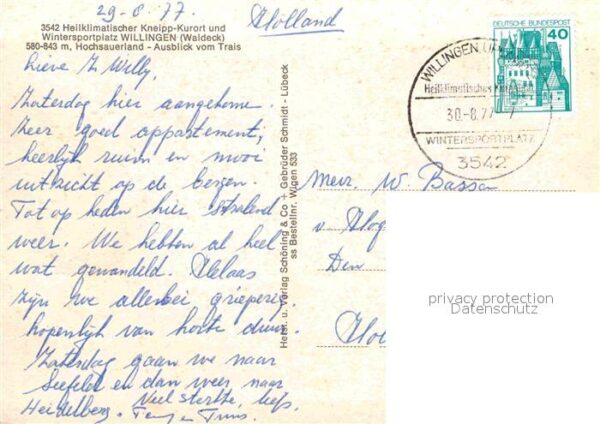 29-8-77
Holland
3542 Heilklimatischer Kneipp-Kurort und
Wintersportplatz WILLINGEN (Waldeck)
580-843 m, Hochsauerland - Ausblick vom Trais
Lieve Z Willy,
Zaterdag hier aangekomen.
Zeer goed appartement,
heerlijk ruim en mooi
uitzicht op de bergen.
Tot op heden hier stralend
weer. We hebben al heel
wat gewandeld. Helaas
zijn we allebei grieperig,
hopenlijk van korte duur.
Zaterdag gaan we naar
Seefeld en dan weer naar
Heidelberg. Veel sterkte, liefs,
en Truus.
Herst. u. Verlag Schöning & Co + Gebrüder Schmidt - Lübeck
ss Bestellnr. Wigen 533
DEUTSCHE BUNDESPOST
40
WILLINGEN
Heilklimatisches
30.-8.77
WINTERSPORTPLATZ
3542
Mevr. W. Bassa
v
Den
privacy protection
Datenschutz